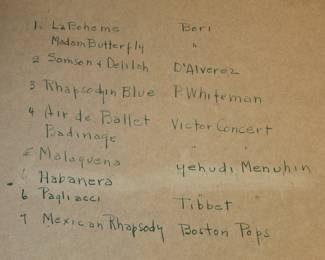 1. LaBoheme Bori
Madam Butterfly "
2 Samson & Delilah D'Alverez
3 Rhapsodyin Blue P. Whiteman
4 Air de Ballet Victor Concert
Badinage " "
5 Malaguena Yehudi Menuhin
6 Habanera
6 Pagliacci Tibbet
7 Mexican Rhapsody Boston Pops